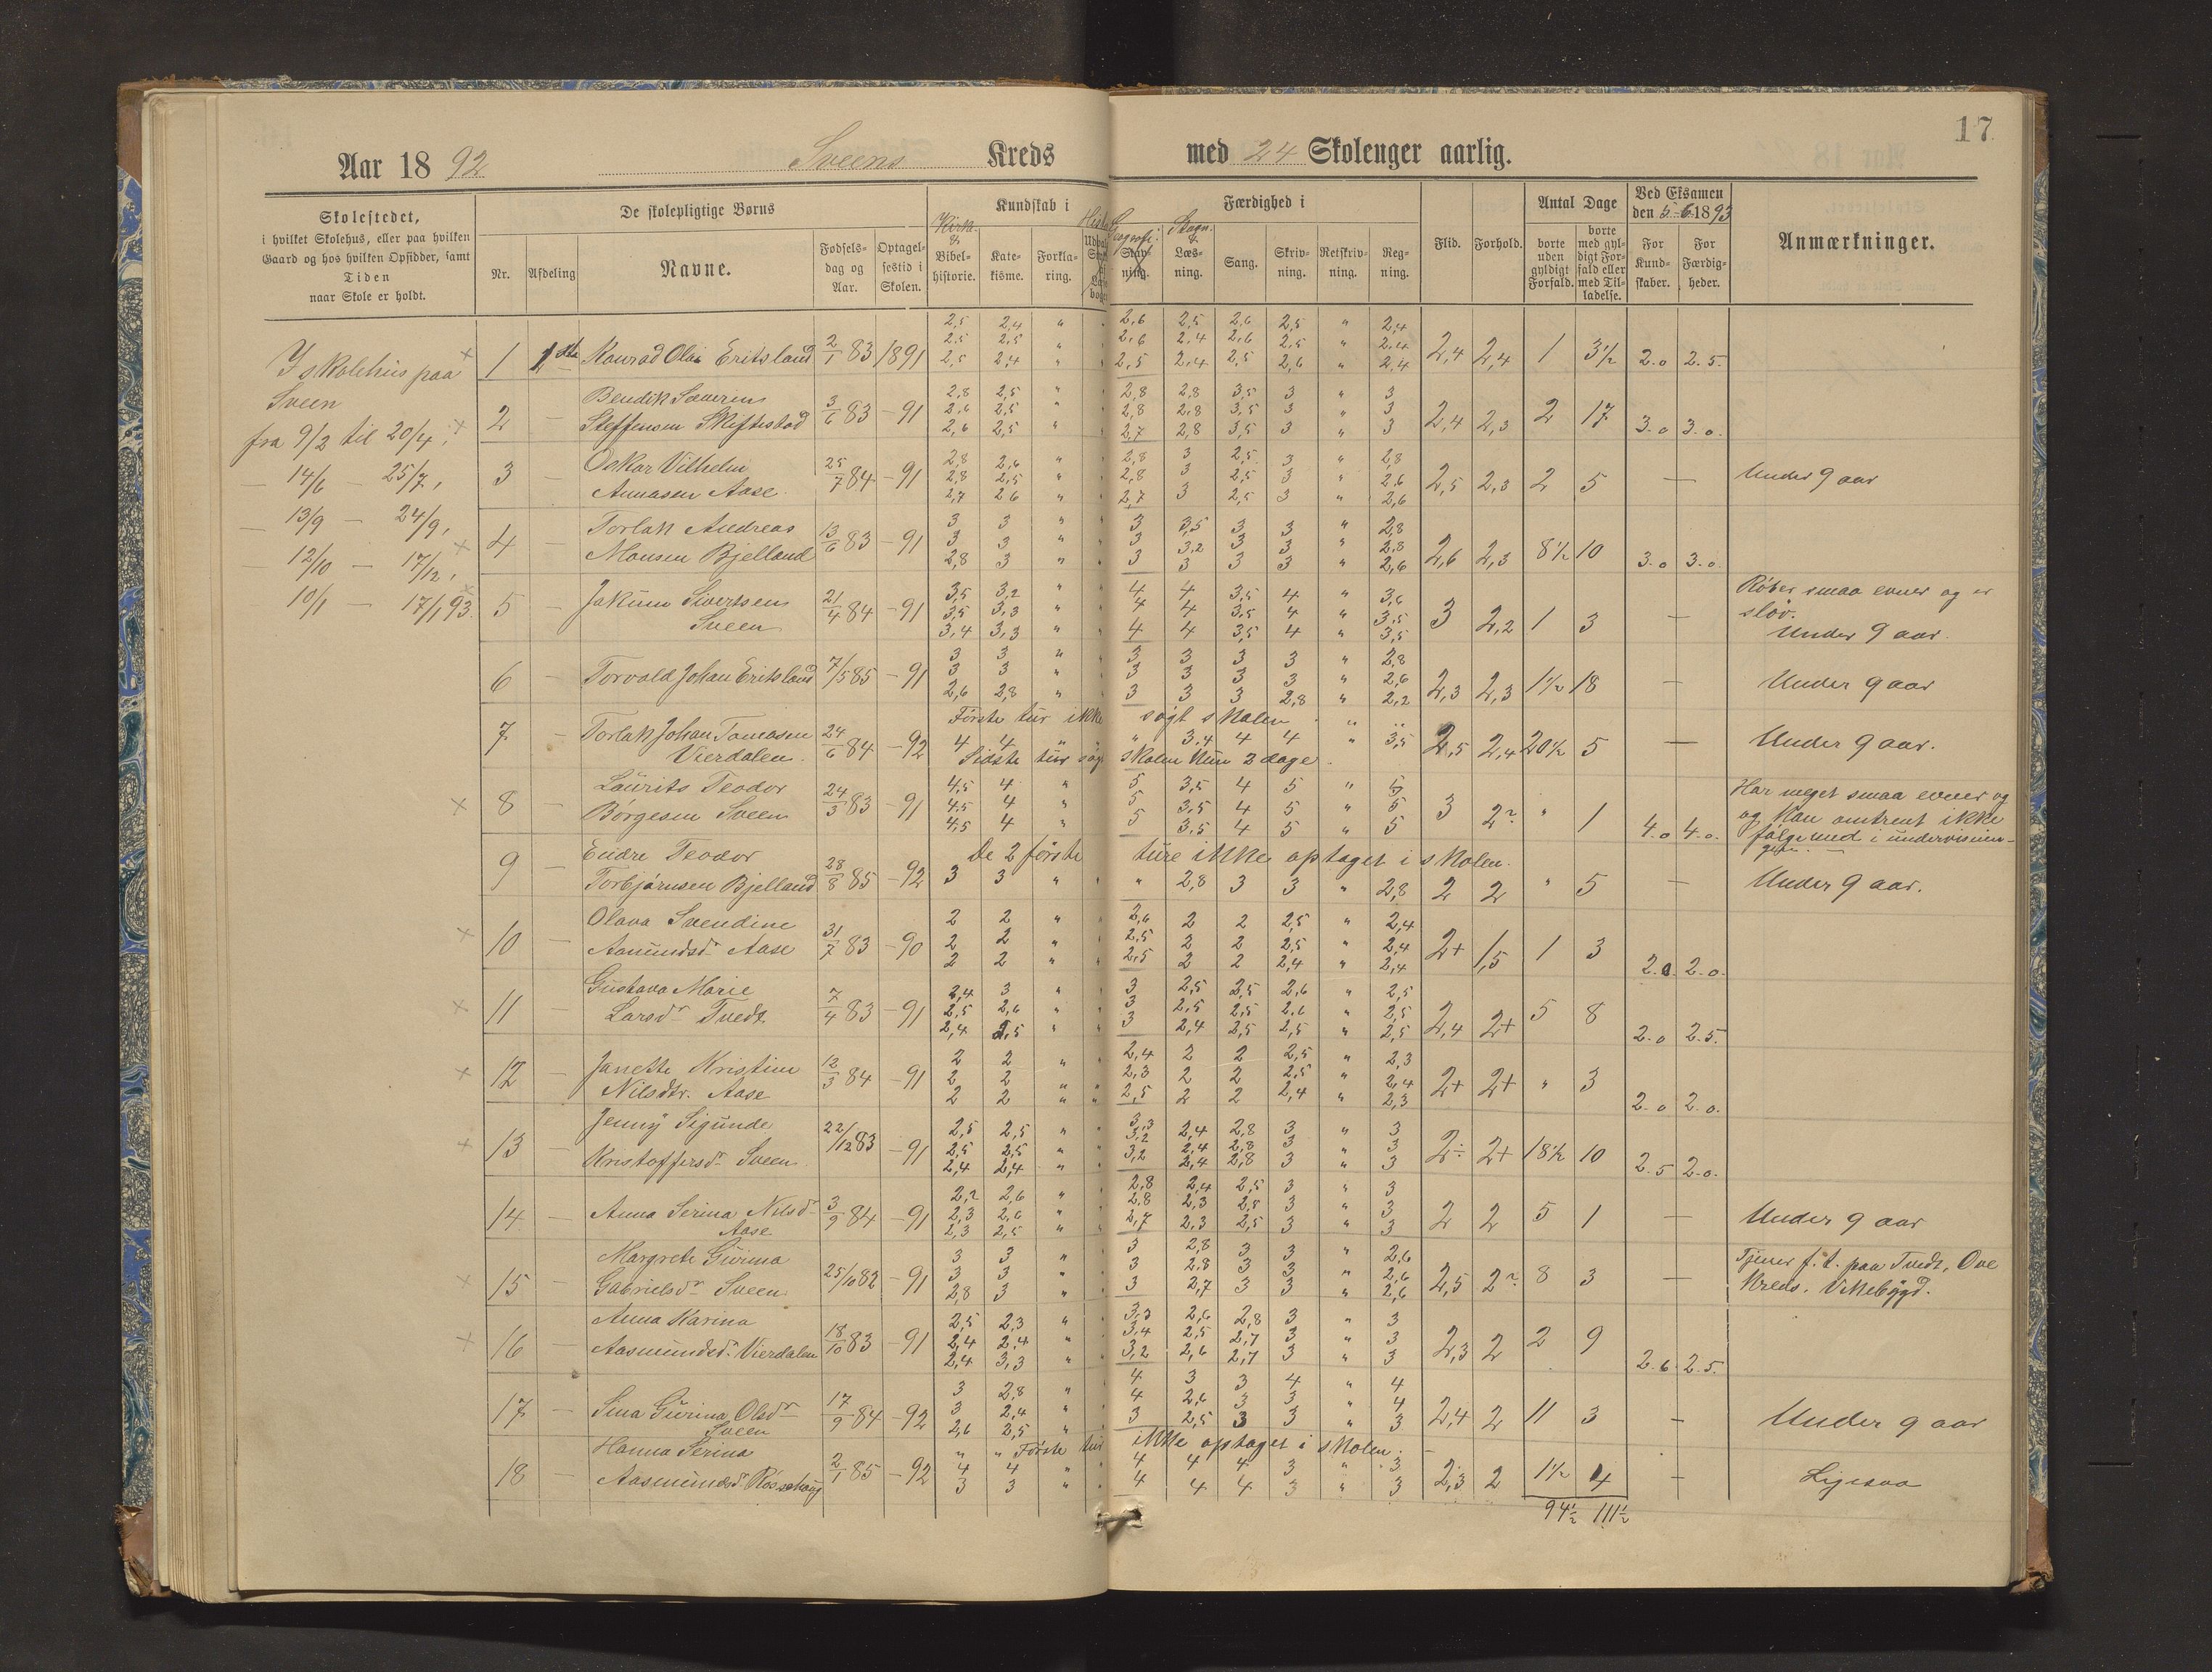 17
Aar 18 92 Sveens Kreds med 24 Skoleuger aarlig.
Skolestedet,
i hvilket Skolehus, eller paa hvilken
Gaard og hos hvilken Opsidder, samt
Tiden
naar Skole er holdt.
De skolepligtige Børns
Nr. Afdeling Navne. Fødsels-
dag og
Aar. Optagel-
sestid i
Skolen.
Kundskab i
Bibel-
historie. Kate-
kisme. Forkla-
ring.
Færdighed i
Geografi. Læs-
ning. Sang. Skriv-
ning. Retskriv-
ning. Reg-
ning.
Flid. Forhold.
Antal Dage
borte
uden
gyldigt
Forfald. borte
med gyl-
digt For-
fald eller
med Til-
ladelse.
Ved Eksamen
den 5-6 1893
For
Kund-
skaber. For
Færdig-
heder.
Anmærkninger.
I skolehus paa
Sveen
fra 9/3 til 20/4,
— 14/6 — 25/7,
— 13/9 — 24/9,
— 12/10 — 17/12,
10/1 — 17/1 93.
2,5 2,4 " 2,6 2,5 2,6 2,5 " 2,4
2,5 2,5 " 2,6 2,4 2,6 2,5 " 2,4
1 1ste Konrad Olai Eritsland 2/1 83 1891 2,5 2,4 " 2,5 2,4 2,5 2,6 " 2,4 2,4 2,4 1 3½ 2.0 2.5.
Bendik Severin 2,8 2,5 " 2,8 2,8 3,5 3 " 3
2 — Steffensen Skiftestad 3/6 83 — 91 2,6 2,5 " 2,8 2,8 3,5 3 " 3 2,4 2,3 2 17 3.0 3.0.
2,6 2,5 " 2,7 2,8 3,5 3 " 3
Oskar Vilhelm 2,8 2,6 " 2,8 3 2,5 3 " 2,8
3 — Aunasen Aase 25/7 84 — 91 2,8 2,5 " 2,8 3 2,5 3 " 2,6 2,5 2,3 2 5 — Under 9 aar
2,7 2,6 " 2,7 3 2,5 3 " 2,6
Torlak Andreas 3 3 " 3 3,5 3 3 " 2,8
4 — Monsen Bjelland 13/6 83 — 91 3 3 " 3 3,2 3 3 " 2,8 2,6 2,3 8½ 10 3.0 3.0.
2,8 3 " 3 3 3 3 " 2,6
5 — Jakum Sivertsen 21/4 84 — 91 3,5 3,2 " 4 4 3,5 4 " 3,6 Røber smaa evner og er
Sveen 3,5 3,3 " 4 4 3,5 4 " 3,5 3 2,2 1 3 — sløv.
3,4 3,3 " 4 4 3,5 4 " 3,5 Under 9 aar.
3 3 " 3 3 3 3 " 2,8
6 — Torvald Johan Eritsland 7/5 85 — 91 3 3 " 3 3 3 3 " 2,6 2,3 2,3 1½ 18 — Under 9 aar
2,6 2,8 " 3 3 3 2,8 " 2,2
Første tur ikke søgt skolen
7 — Torlak Johan Tomasen 24/6 84 — 92 4 4 " " 3,4 4 4 " 3,5 2,5 2,4 20½ 5 — Under 9 aar.
Vierdalen. Sidste tur søgt skolen kun 2 dage.
Laurits Teodor 4,5 4 " 5 3,5 4 5 " 5 Har meget smaa evner og
8 — Børgesen Sveen 24/3 83 — 91 4,5 4 " 5 3,5 4 5 " 5 3 2? " 1 4.0 4.0. og kan omtrent ikke
4,5 4 " 5 3,5 4 5 " 5 følge med i undervisnin-
gen.
Endre Teodor De 2 første ture ikke optaget i skolen.
9 — Torbjørnsen Bjelland 28/8 85 — 92 3 3 " " 2,8 3 3 " 2,8 2 2 " 5 — Under 9 aar.
Olava Svendine 2 2 " 2,6 2 2 2,5 " 2,4
10 — Aamundsdr Aase 31/7 83 — 90 2 2 " 2,5 2 2 2,5 " 2,4 2+ 1,5 1 3 2.0. 2.0.
2 2 " 2,5 2 2 2,4 " 2,4
Gustava Marie 2,4 3 " 3 2,5 2,5 2,6 " 2,5
11 — Larsdr Tvedt 7/4 83 — 91 2,5 2,6 " 3 2,5 2,5 2,6 " 2,5 2,4 2+ 5 8 2.0 2.5.
2,4 2,5 " 3 2,4 2,5 2,5 " 2,5
Janette Kristine 2 2 " 2,4 2 2 2,5 " 2,3
12 — Nilsdtr. Aase 12/3 84 — 91 2 2 " 2,3 2 2 2,5 " 2,4 2+ 2+ " 3 2.0 2.0.
2 2 " 2,5 2 2 2,4 " 2,3
Jenny Sigunde 2,5 2,5 " 3,3 2,4 2,8 3 " 3
13 — Kristoffersdr Sveen 22/12 83 — 91 2,5 2,5 " 3,2 2,4 2,8 3 " 3 2÷ 2+ 18½ 10 2.5 2.0.
2,4 2,4 " 3,2 2,4 2,8 3 " 3
2,2 2,6 " 2,8 2,4 2,5 3 " 3
14 — Anna Serina Nilsdr 3/9 84 — 91 2,3 2,6 " 2,8 2,3 2,5 3 " 3 2 2 5 1 — Under 9 aar
Aase 2,3 2,5 " 2,7 2,3 2,5 3 " 3
Margrete Gurina 3 3 " 3 2,8 3 3 " 2,6 Tjener f. t. paa Tvedt, Ove
15 — Gabrielsdr Sveen 25/10 82 — 91 3 3 " 3 2,8 3 3 " 2,6 2,5 2? 8 3 — Kreds. Vikebygd.
2,8 3 " 3 2,7 3 3 " 2,6
Anna Karina 2,5 2,3 " 3,3 2,6 2,8 3 " 3
16 — Aasmundsdr Vierdalen 18/10 83 — 91 2,4 2,4 " 3,4 2,5 2,7 3 " 3 2,3 2 2 9 2.6 2.5.
2,4 3,3 " 3,2 2,6 2,7 3 " 3
3 2,8 " 4 3 3 4 " 4
17 — Sina Gurina Olsdr 17/9 84 — 92 3 2,4 " 4 2,6 3 3 " 4 2,4 2 11 3 — Under 9 aar
Sveen 2,6 2,5 " 3 2,5 3 3 " 3
Hanna Serina " " Første tur ikke optaget i skolen.
18 — Aasmundsdr 2/1 85 — 92 4 4 " 4 4 4 3 " 3 2,3 2 1½ 4 — Ligesaa
3 3 " 4 4 4 3 " 3
94½ 111½